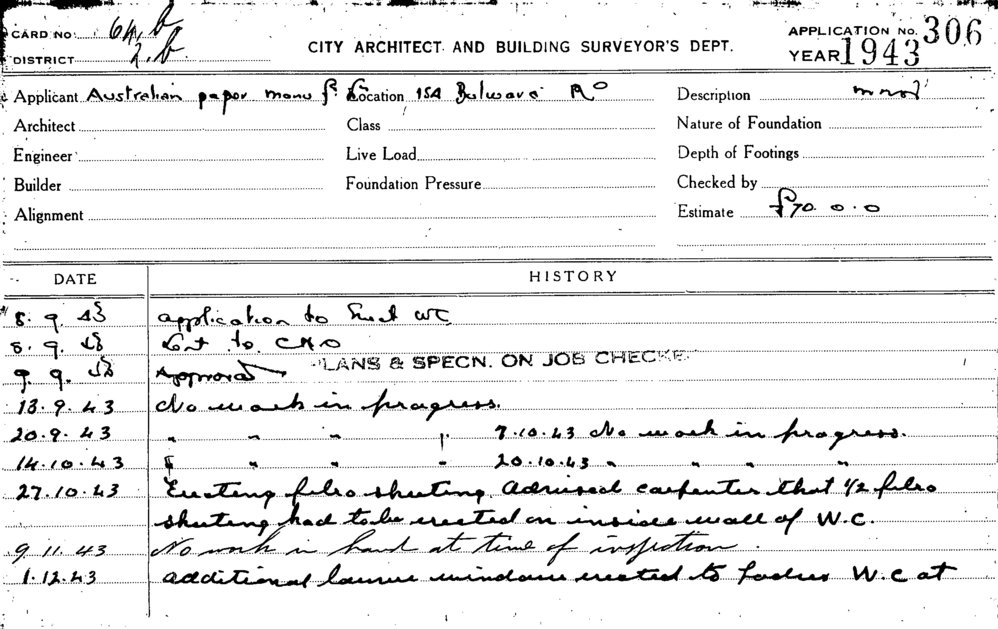 CARD NO: 64 b
DISTRICT 2.b
CITY ARCHITECT AND BUILDING SURVEYOR'S DEPT.
APPLICATION NO. 306
YEAR 1943
Applicant Australian paper manu Location 154 Bulwara Rd
Description
Architect
Class
Nature of Foundation
Engineer
Live Load
Depth of Footings
Builder
Foundation Pressure
Checked by
Alignment
Estimate £70.0.0
DATE HISTORY
8.9.43 application to Erect WC
8.9.43 to CHO
9.9.43 Approved PLANS & SPECN. ON JOB CHECKE
13.9.43 No work in progress.
20.9.43 " " " " 7.10.43 No work in progress.
14.10.43 " " " " 20.10.43 " " " "
27.10.43 Erecting fibro sheeting. Advised carpenter that 1/2 fibro
sheeting had to be erected on inside wall of W.C.
9.11.43 No work in hand at time of inspection.
1.12.43 additional louvre window erected to Ladies W.C at